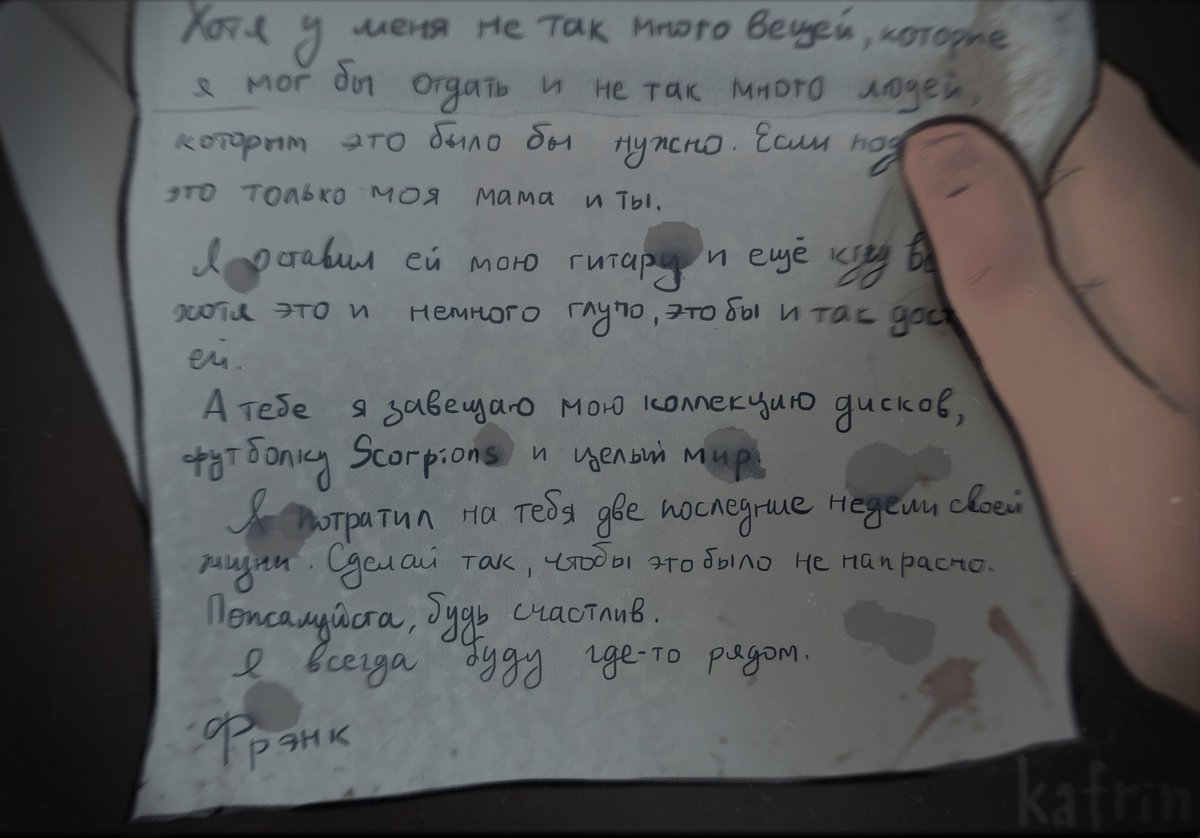 Хотя у меня не так много вещей, которые
я мог бы отдать и не так много людей,
которым это было бы нужно. Если
это только моя мама и ты.
Я оставил ей мою гитару и ещё кучу
хотя это и немного глупо, это бы и так
ей.
А тебе я завещаю мою коллекцию дисков,
футболку Scorpions и целый мир.
Я потратил на тебя две последние недели своей
жизни. Сделай так, чтобы это было не напрасно.
Пожалуйста, будь счастлив.
Я всегда буду где-то рядом.
Фрэнк
kafrin